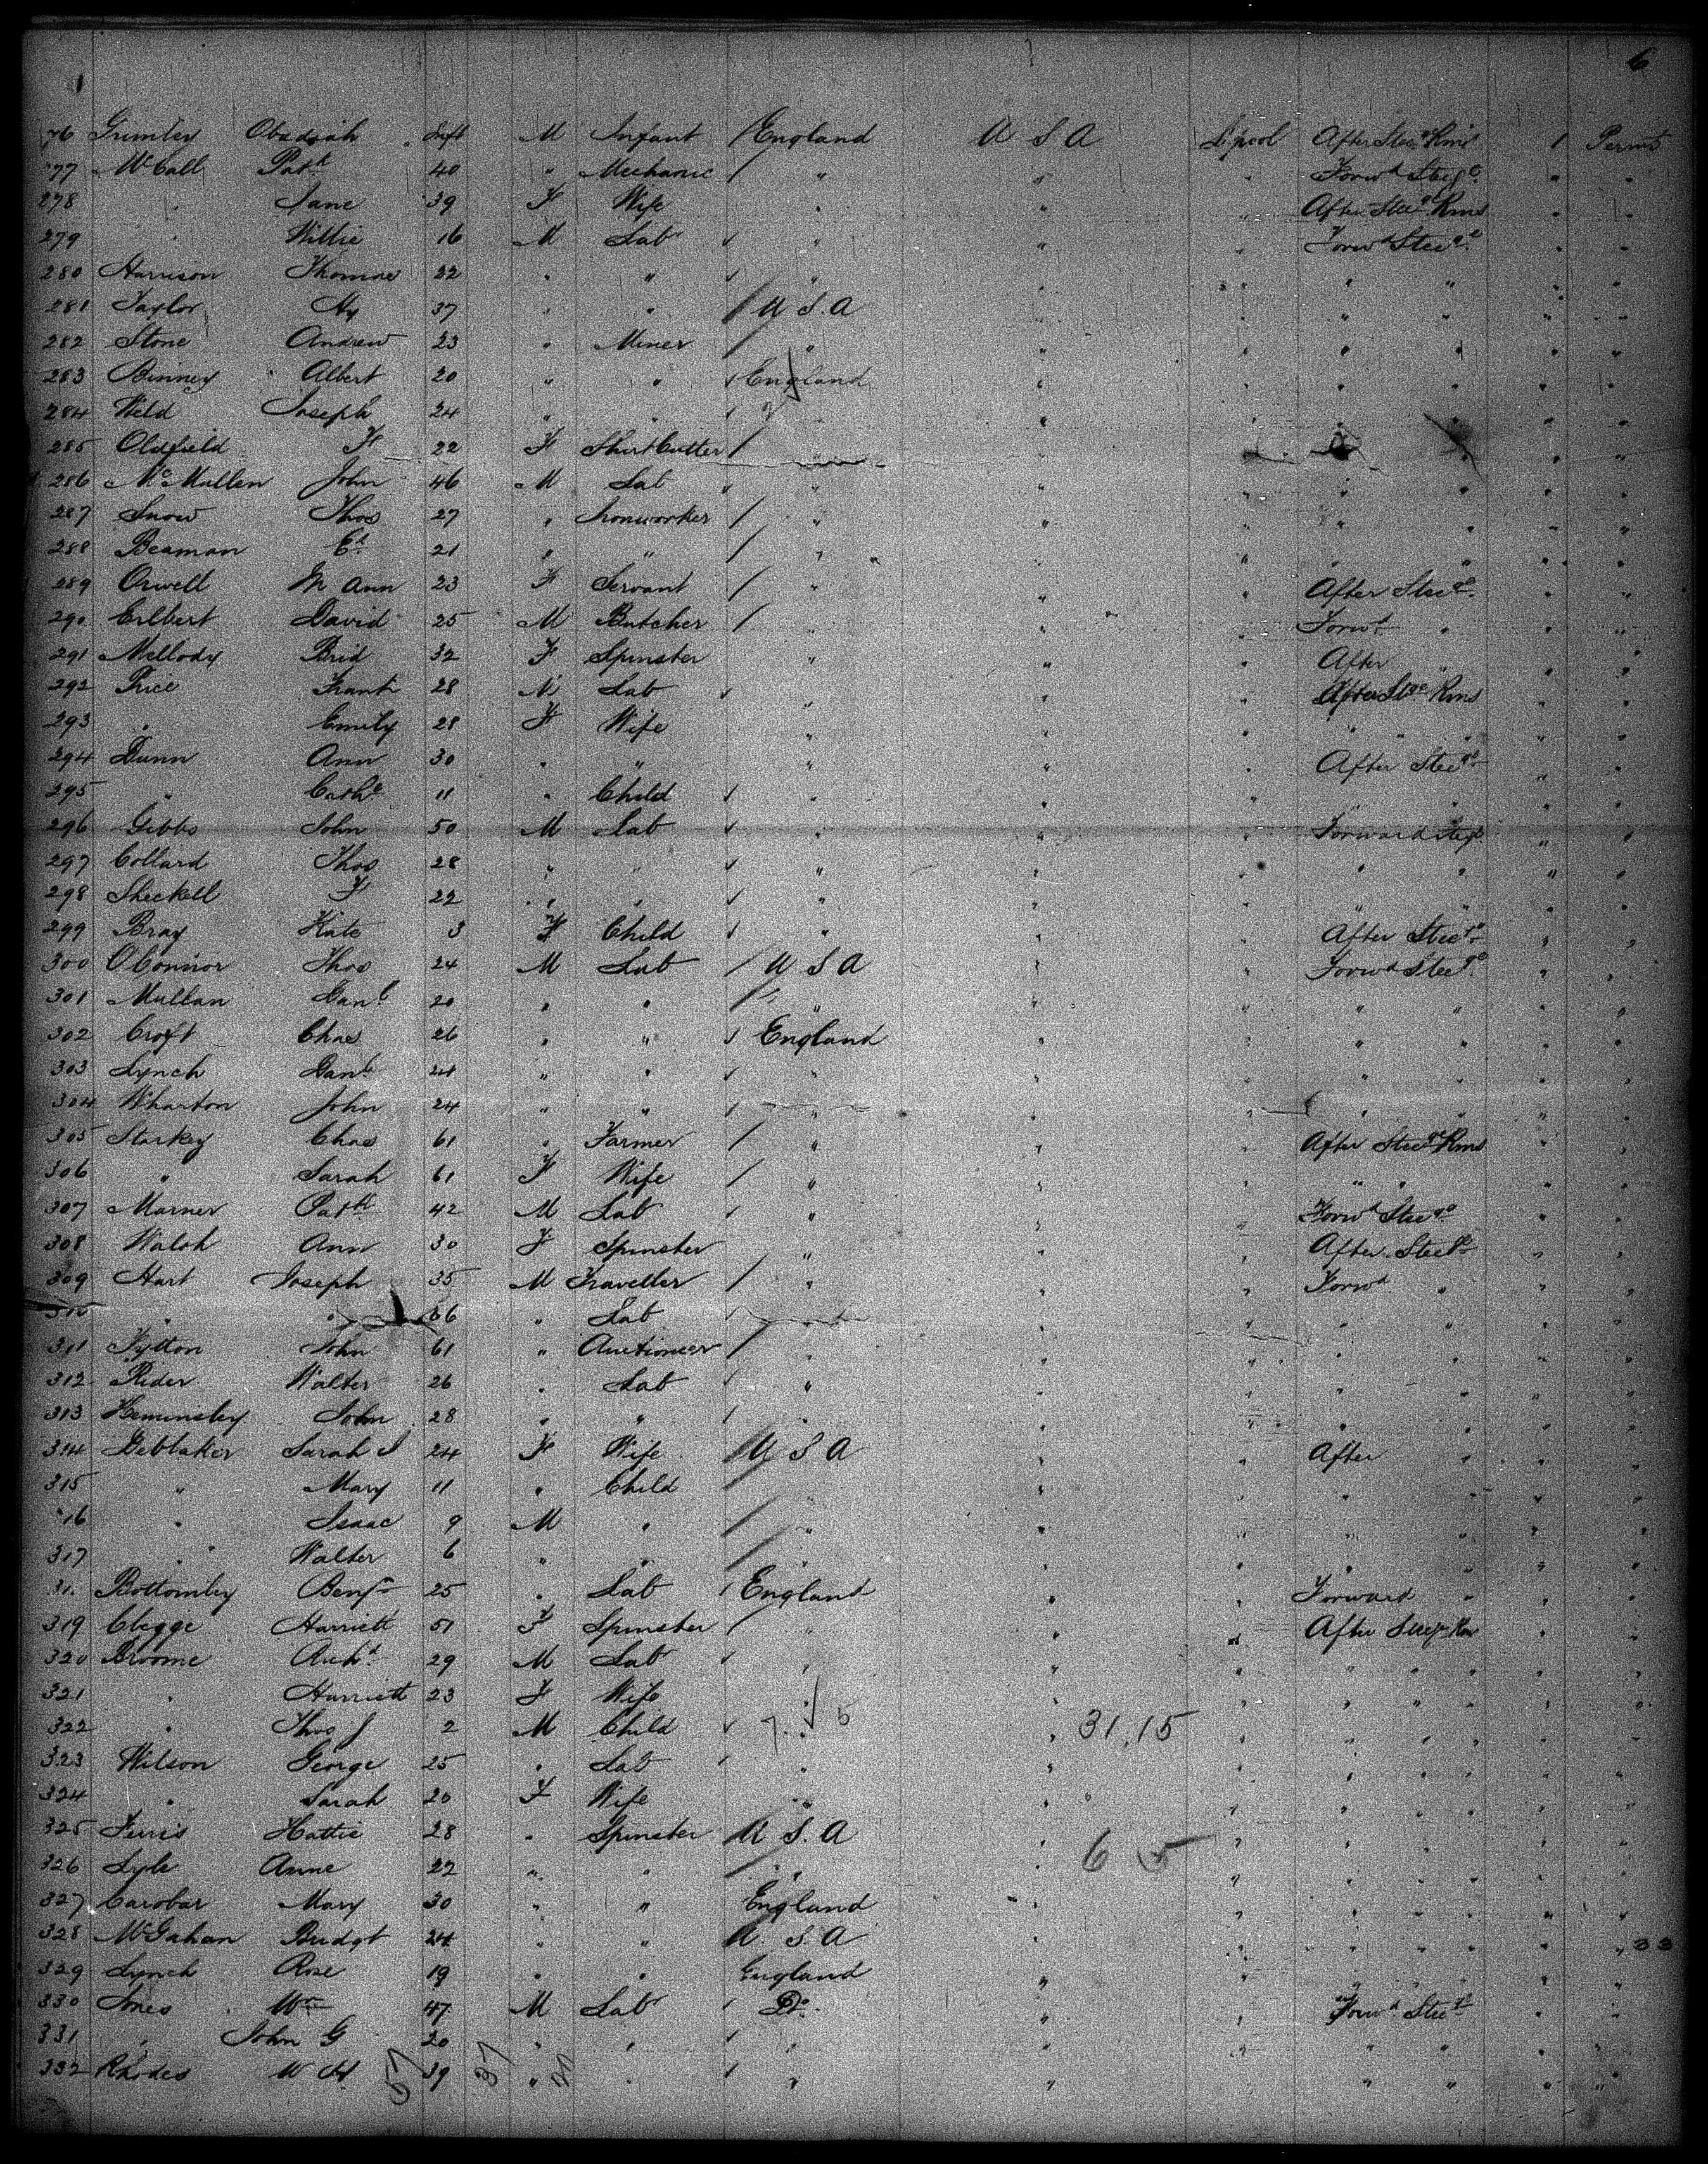 6
1
76 Grimley Obadiah Inft M Infant / England U S A L.pool After Steege Rms 1 Permt
77 McCall Patk 40 " Mechanic / " " " Forwd Steege " "
278 " Jane 39 F Wife " " " After Steege Rms " "
279 " Willie 16 M Labr " " " Forwd Steege " "
280 Harrison Thomas 22 " " " " " " " " "
281 Taylor Hy 37 " " / U S. A " " " " " "
282 Stone Andrew 23 " Miner / " " " " " " "
283 Binney Albert 20 " " England " " " " " "
284 Weld Joseph 24 " " " " " " " " "
285 Oldfield F 22 F Shirt Cutter / " " " " " " "
286 McMullen John 46 M Lab " " " " " " "
287 Snow Thos 27 " Ironworker / " " " " " " "
288 Beaman Ed 21 " " / " " " " " " "
289 Orwell M Ann 23 F Servant / " " " After Steege " "
290 Gilbert David 25 M Butcher / " " " Forwd " " "
291 Mellody Brid 32 F Spinster " " " After " " "
292 Price Frank 28 M Lab " " " After Stge Rms " "
293 " Emily 28 F Wife " " " " " " "
294 Dunn Ann 30 " " " " " After Steege " "
295 " Cathe 11 " Child " " " " " " "
296 Gibbs John 50 M Lab " " " Forward stege " "
297 Collard Thos 28 " " " " " " " " "
298 Sheckell F 22 " " " " " " " " "
299 Bray Kate 3 F Child " " " After Steege " "
300 O'Connor Thos 24 M Lab / U S A " " Forwd Steege " "
301 Mullan Danl 20 " " / " " " " " " "
302 Croft Chas 26 " " England " " " " " "
303 Lynch Danl 24 " " " " " " " " "
304 Wharton John 24 " " " " " " " " "
305 Starkey Chas 61 " Farmer / " " " After Steege Rms " "
306 " Sarah 61 F Wife / " " " " " " "
307 Marner Patk 42 M Lab " " " Forwd Steege " "
308 Walsh Ann 30 F Spinster " " " After Steege " "
309 Hart Joseph 35 M Traveller / " " " Forwd " " "
310 " " 36 " Lab " " " " " " "
311 Fytton John 61 " Auctioneer / " " " " " " "
312 Rider Walter 26 " Lab " " " " " " "
313 Heminsley John 28 " " " " " " " " "
314 Deblaker Sarah J 24 F Wife / U S A " " After " " "
315 " Mary 11 " Child " " " " " " "
316 " Isaac 9 M " / " " " " " " "
317 " Walter 6 " " / " " " " " " "
31. Bottomley Benjn 25 " Lab England " " Forward " " "
319 Clegge Harriett 51 F Spinster / " " " After Steege Rm " "
320 Broome Archd 29 M Lab " " " " " " "
321 " Harriett 23 F Wife " " " " " " "
322 " Thos J 2 M Child " " 31.15 " " " " "
323 Wilson George 25 " Lab " " " " " " "
324 " Sarah 20 F Wife " " " " " " "
325 Ferris Hattie 28 " Spinster / U S. A " " " " " "
6 5
326 Lyle Anne 22 " " " " " " " " "
327 Carobar Mary 30 " " England " " " " " "
328 McGahan Bridgt 24 " " U. S. A " " " " " " 33
329 Lynch Rose 19 " " England " " " " " "
330 Jones Wm 47 M Labr Do " " Forwd Steege " "
331 " John G 20 " " " " " " " " "
332 Rhodes W H 39 " " " " " " " " "
57 37 20